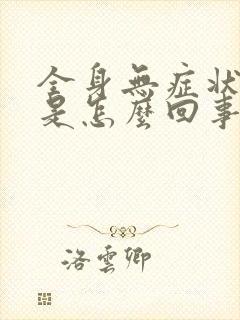 全身無症狀
是怎麼回事
洛雲卿